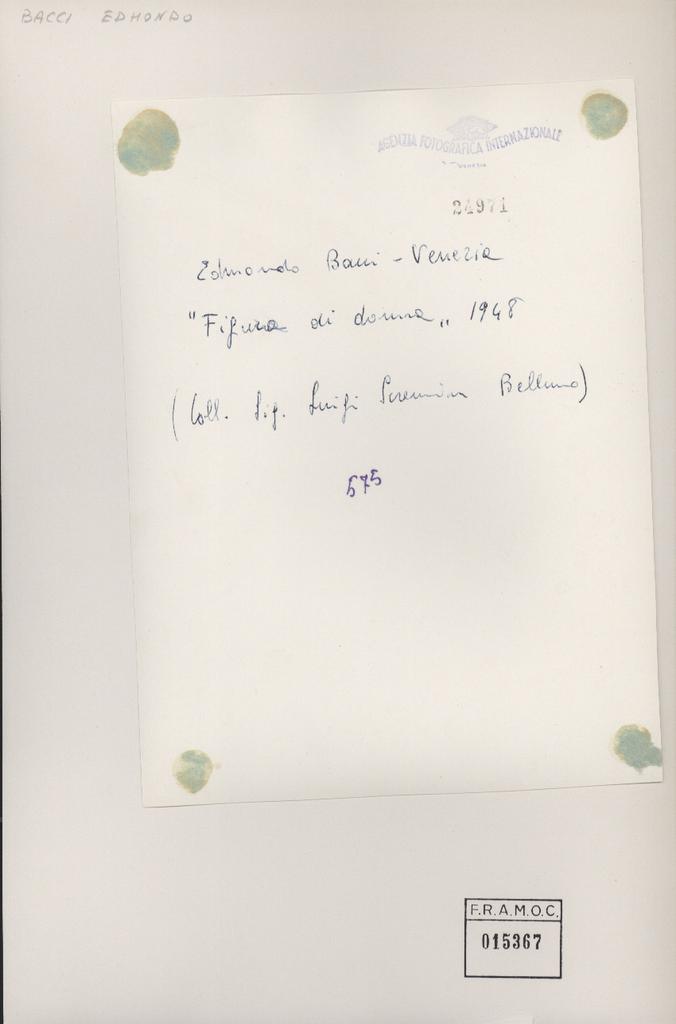 BACCI EDMONDO
AGENZIA FOTOGRAFICA INTERNAZIONALE
VENEZIA
24971
Edmondo Bacci - Venezia
"Figura di donna" 1948
(Coll. Sig. Luigi Belluno)
575
F.R.A.M.O.C.
015367